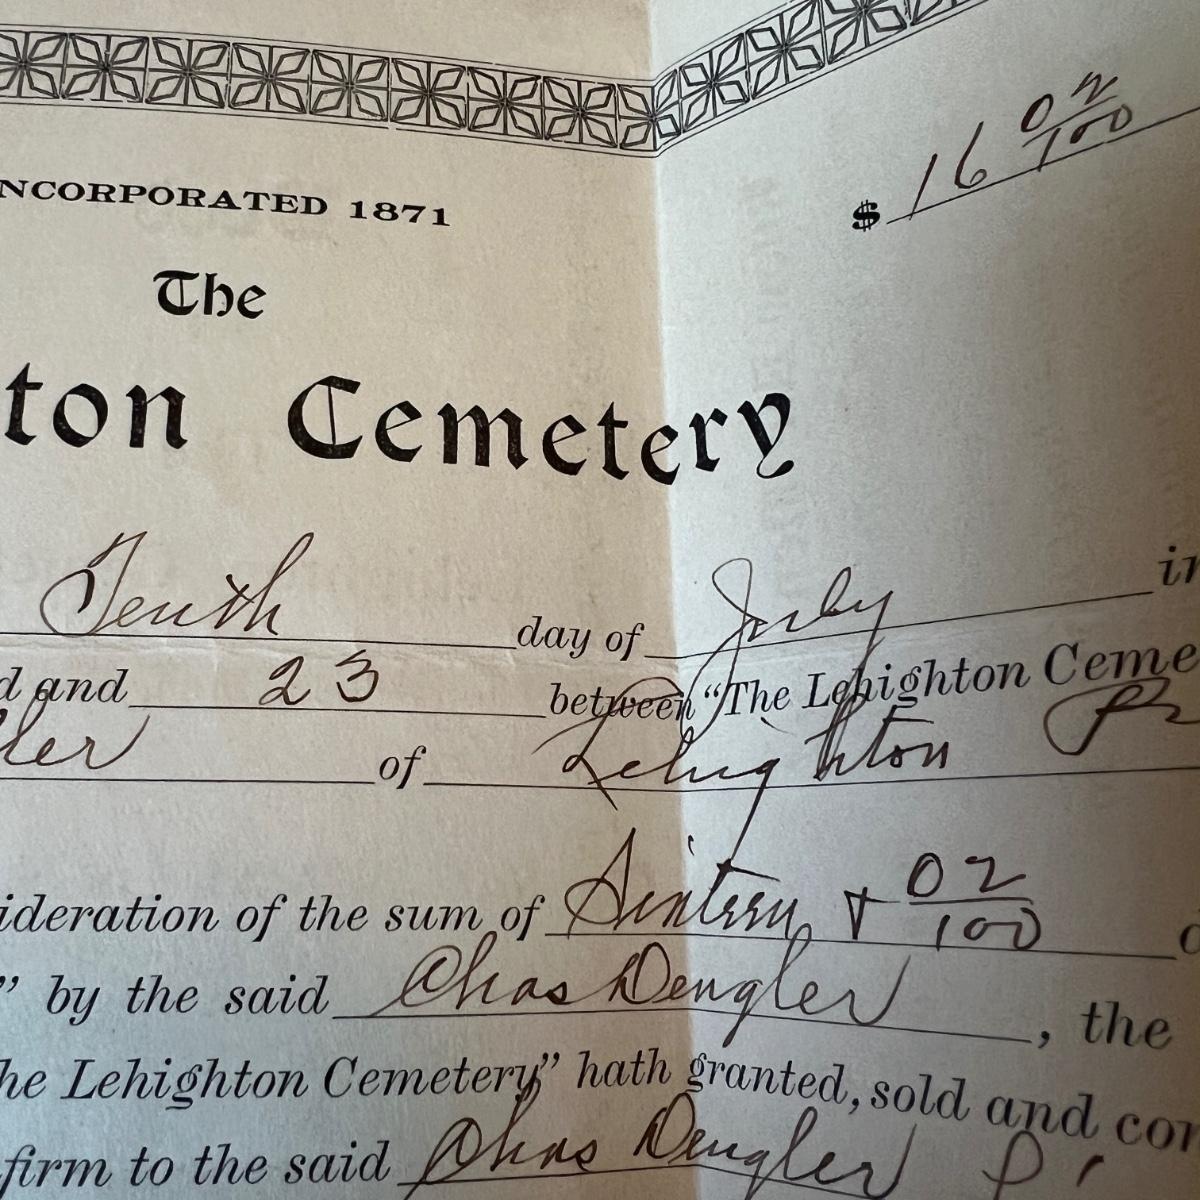 NCORPORATED 1871
$ 16 02/100
The
ton Cemetery
Tenth day of July in
d and 23 between "The Lehighton Ceme
ler of Lehighton Pa
ideration of the sum of Sixteen & 02/100
" by the said Chas Dengler, the
he Lehighton Cemetery" hath granted, sold and con
firm to the said Chas Dengler